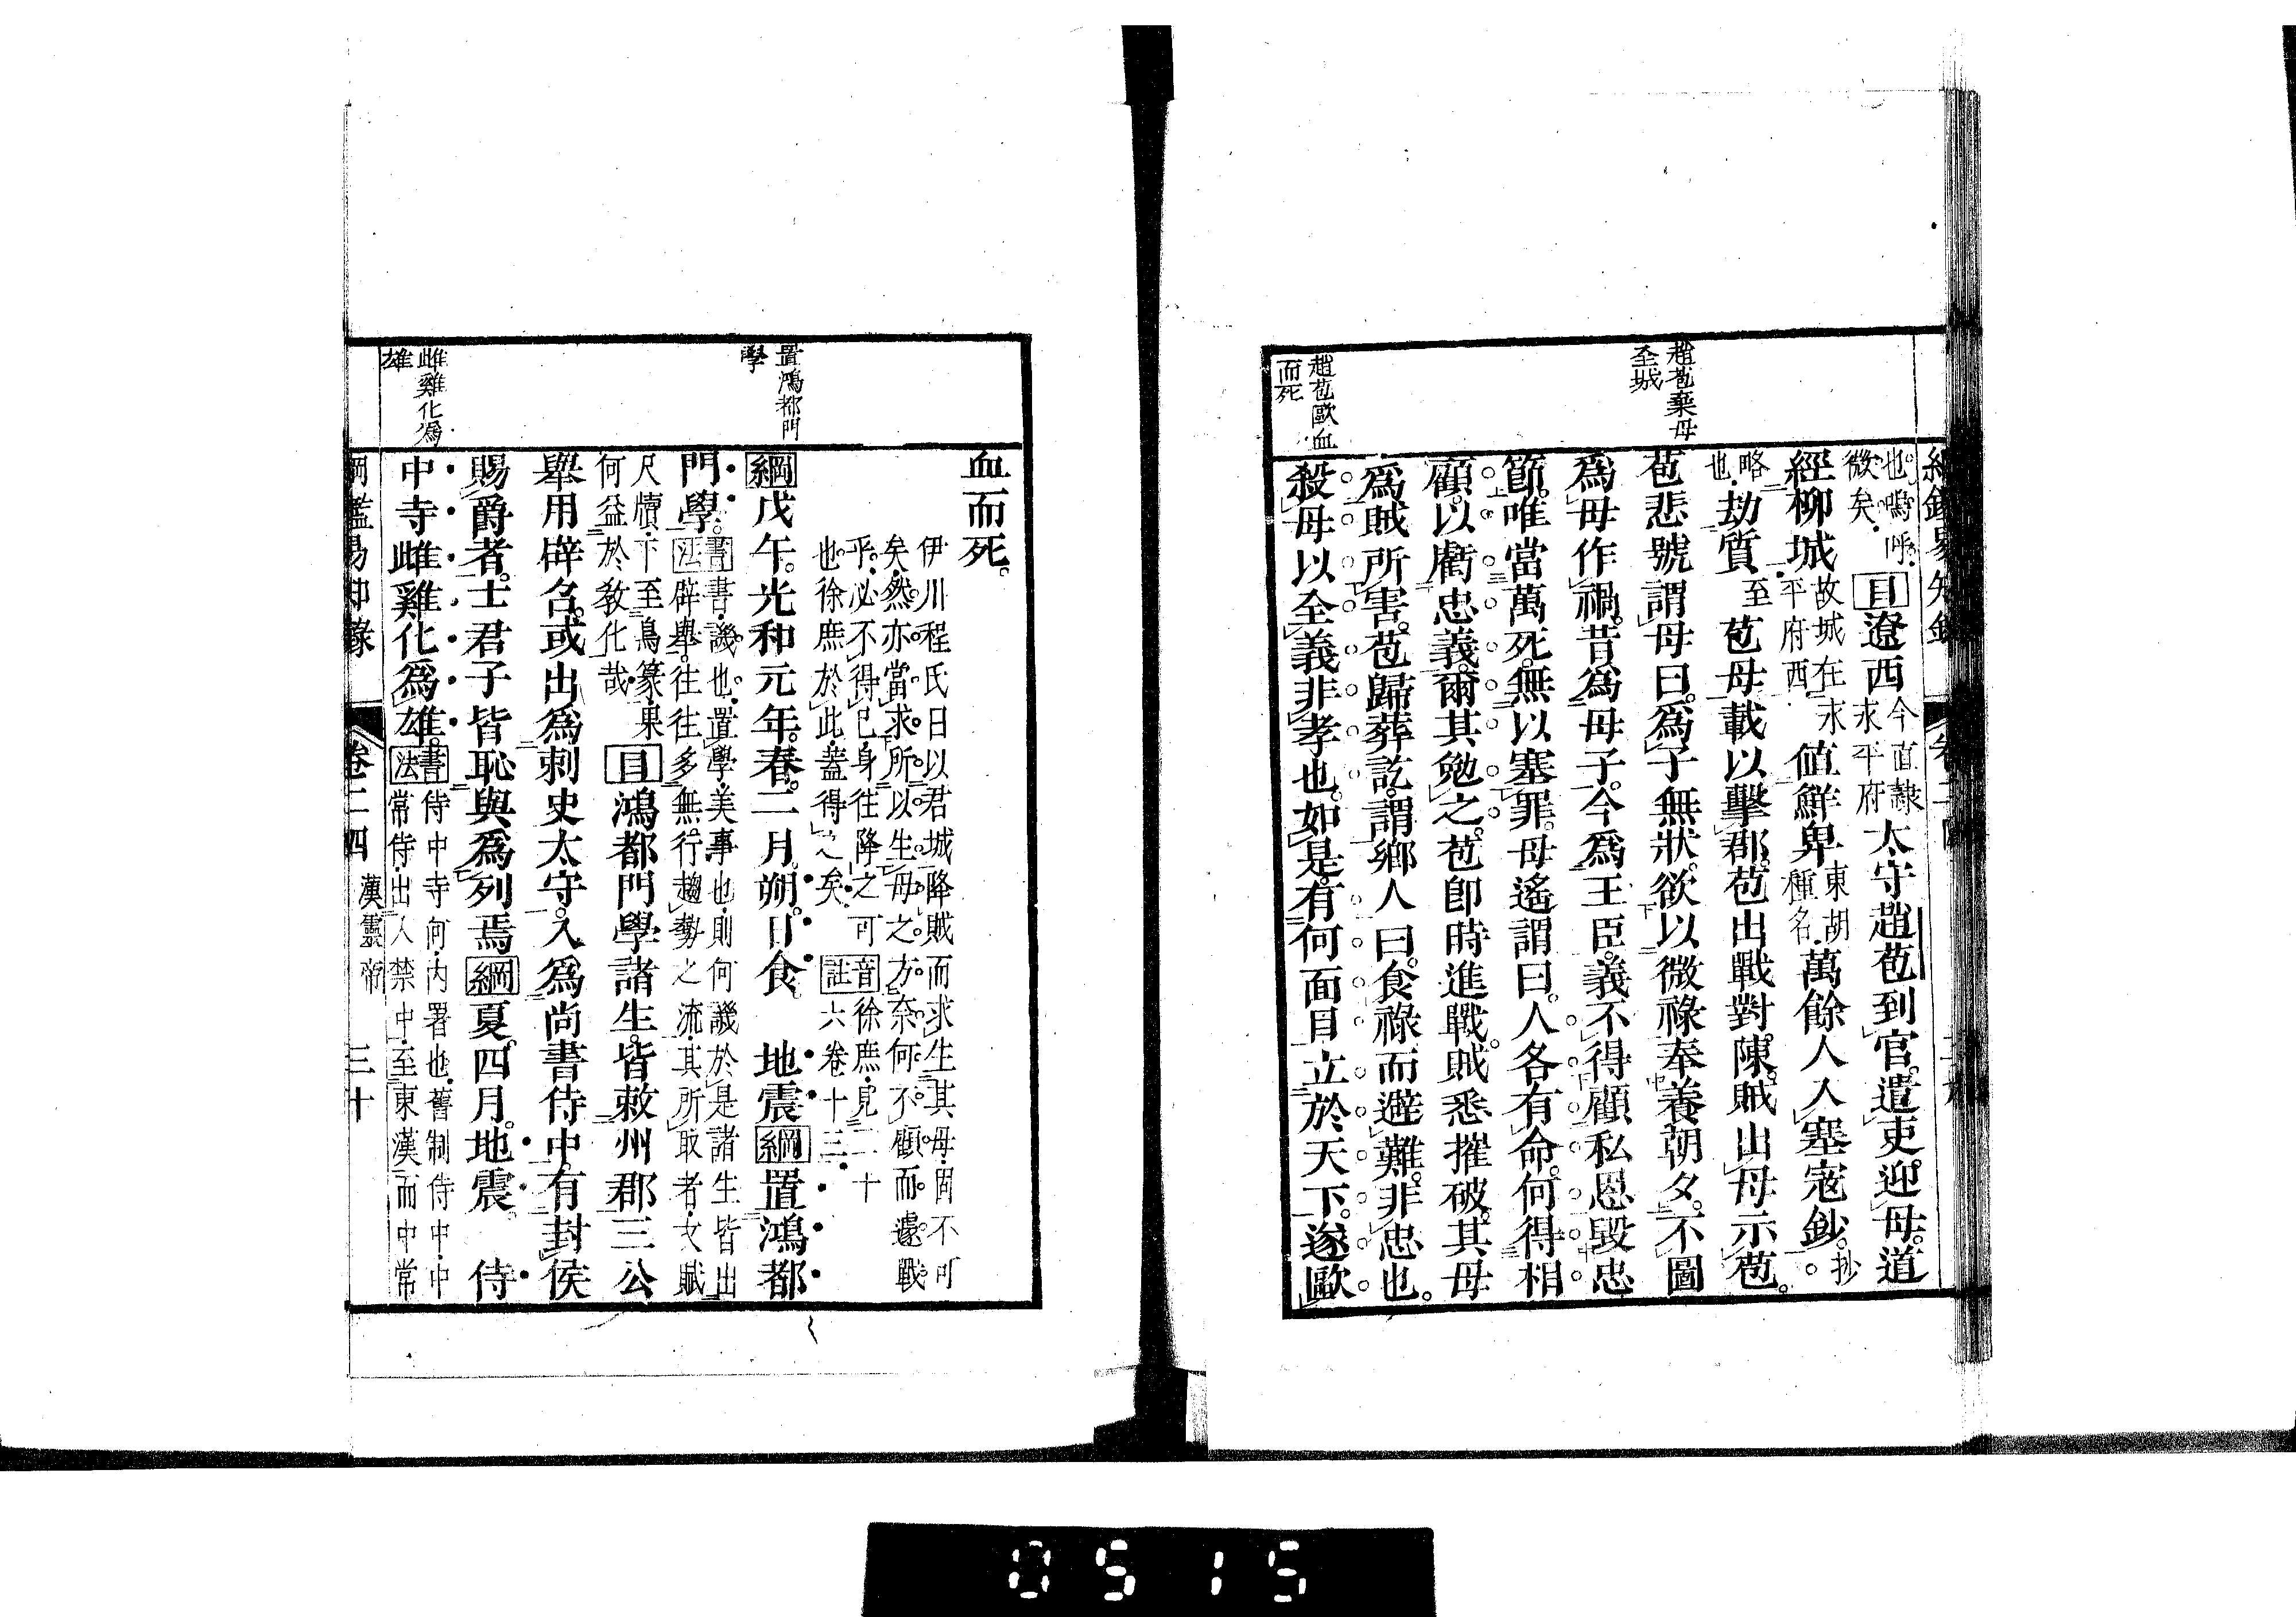 趙苞棄母
全城
趙苞歐血
而死
也。嗚呼
微矣。目遼西今直隸
永平府太守趙苞到官。遣吏迎母。道
經柳城故城在永
平府西。值鮮卑東胡
種名。萬餘人入塞寇鈔。抄
略
也。劫質。至苞母載以擊郡。苞出戰對陳。賊出母示苞。
苞悲號謂母曰。爲子無狀。欲以微祿奉養朝夕。不圖
爲母作禍。昔爲母子。今爲王臣。義不得顧私恩毀忠
節。唯當萬死。無以塞罪。母遙謂曰。人各有命。何得相
顧。以虧忠義。爾其勉之。苞卽時進戰。賊悉摧破。其母
爲賊所害。苞歸葬訖。謂鄉人曰。食祿而避難。非忠也。
殺母以全義。非孝也。如是。有何面目立於天下。遂歐
置鴻都門
學
雌雞化爲
雄
血而死。
伊川程氏曰以君城降賊而求生其母固不可
矣。然亦當求所以生母之方。奈何不顧而遽戰
乎。必不得已。身往降之可
也。徐庶於此。蓋得之矣。音註徐庶。見二十
六卷十三。
綱戊午。光和元年。春。二月。朔。日食。 地震綱置鴻都
門學。書法書。書。譏也。置學。美事也。則何譏於是諸生皆出
辟舉。往往多無行趨勢之流。其所取者。文賦
尺牘。下至鳥篆。果
何益於敎化哉。目鴻都門學諸生。皆敕州郡三公
舉用辟召。或出爲刺史太守。入爲尚書侍中。有封侯
賜爵者。士君子皆恥與爲列焉綱夏。四月。地震。 侍
中寺雌雞化爲雄。書法侍中寺何。內署也。舊制侍中。中
常侍。出入禁中。至東漢而中常
綱鑑易知錄 卷二四 漢靈帝 三十